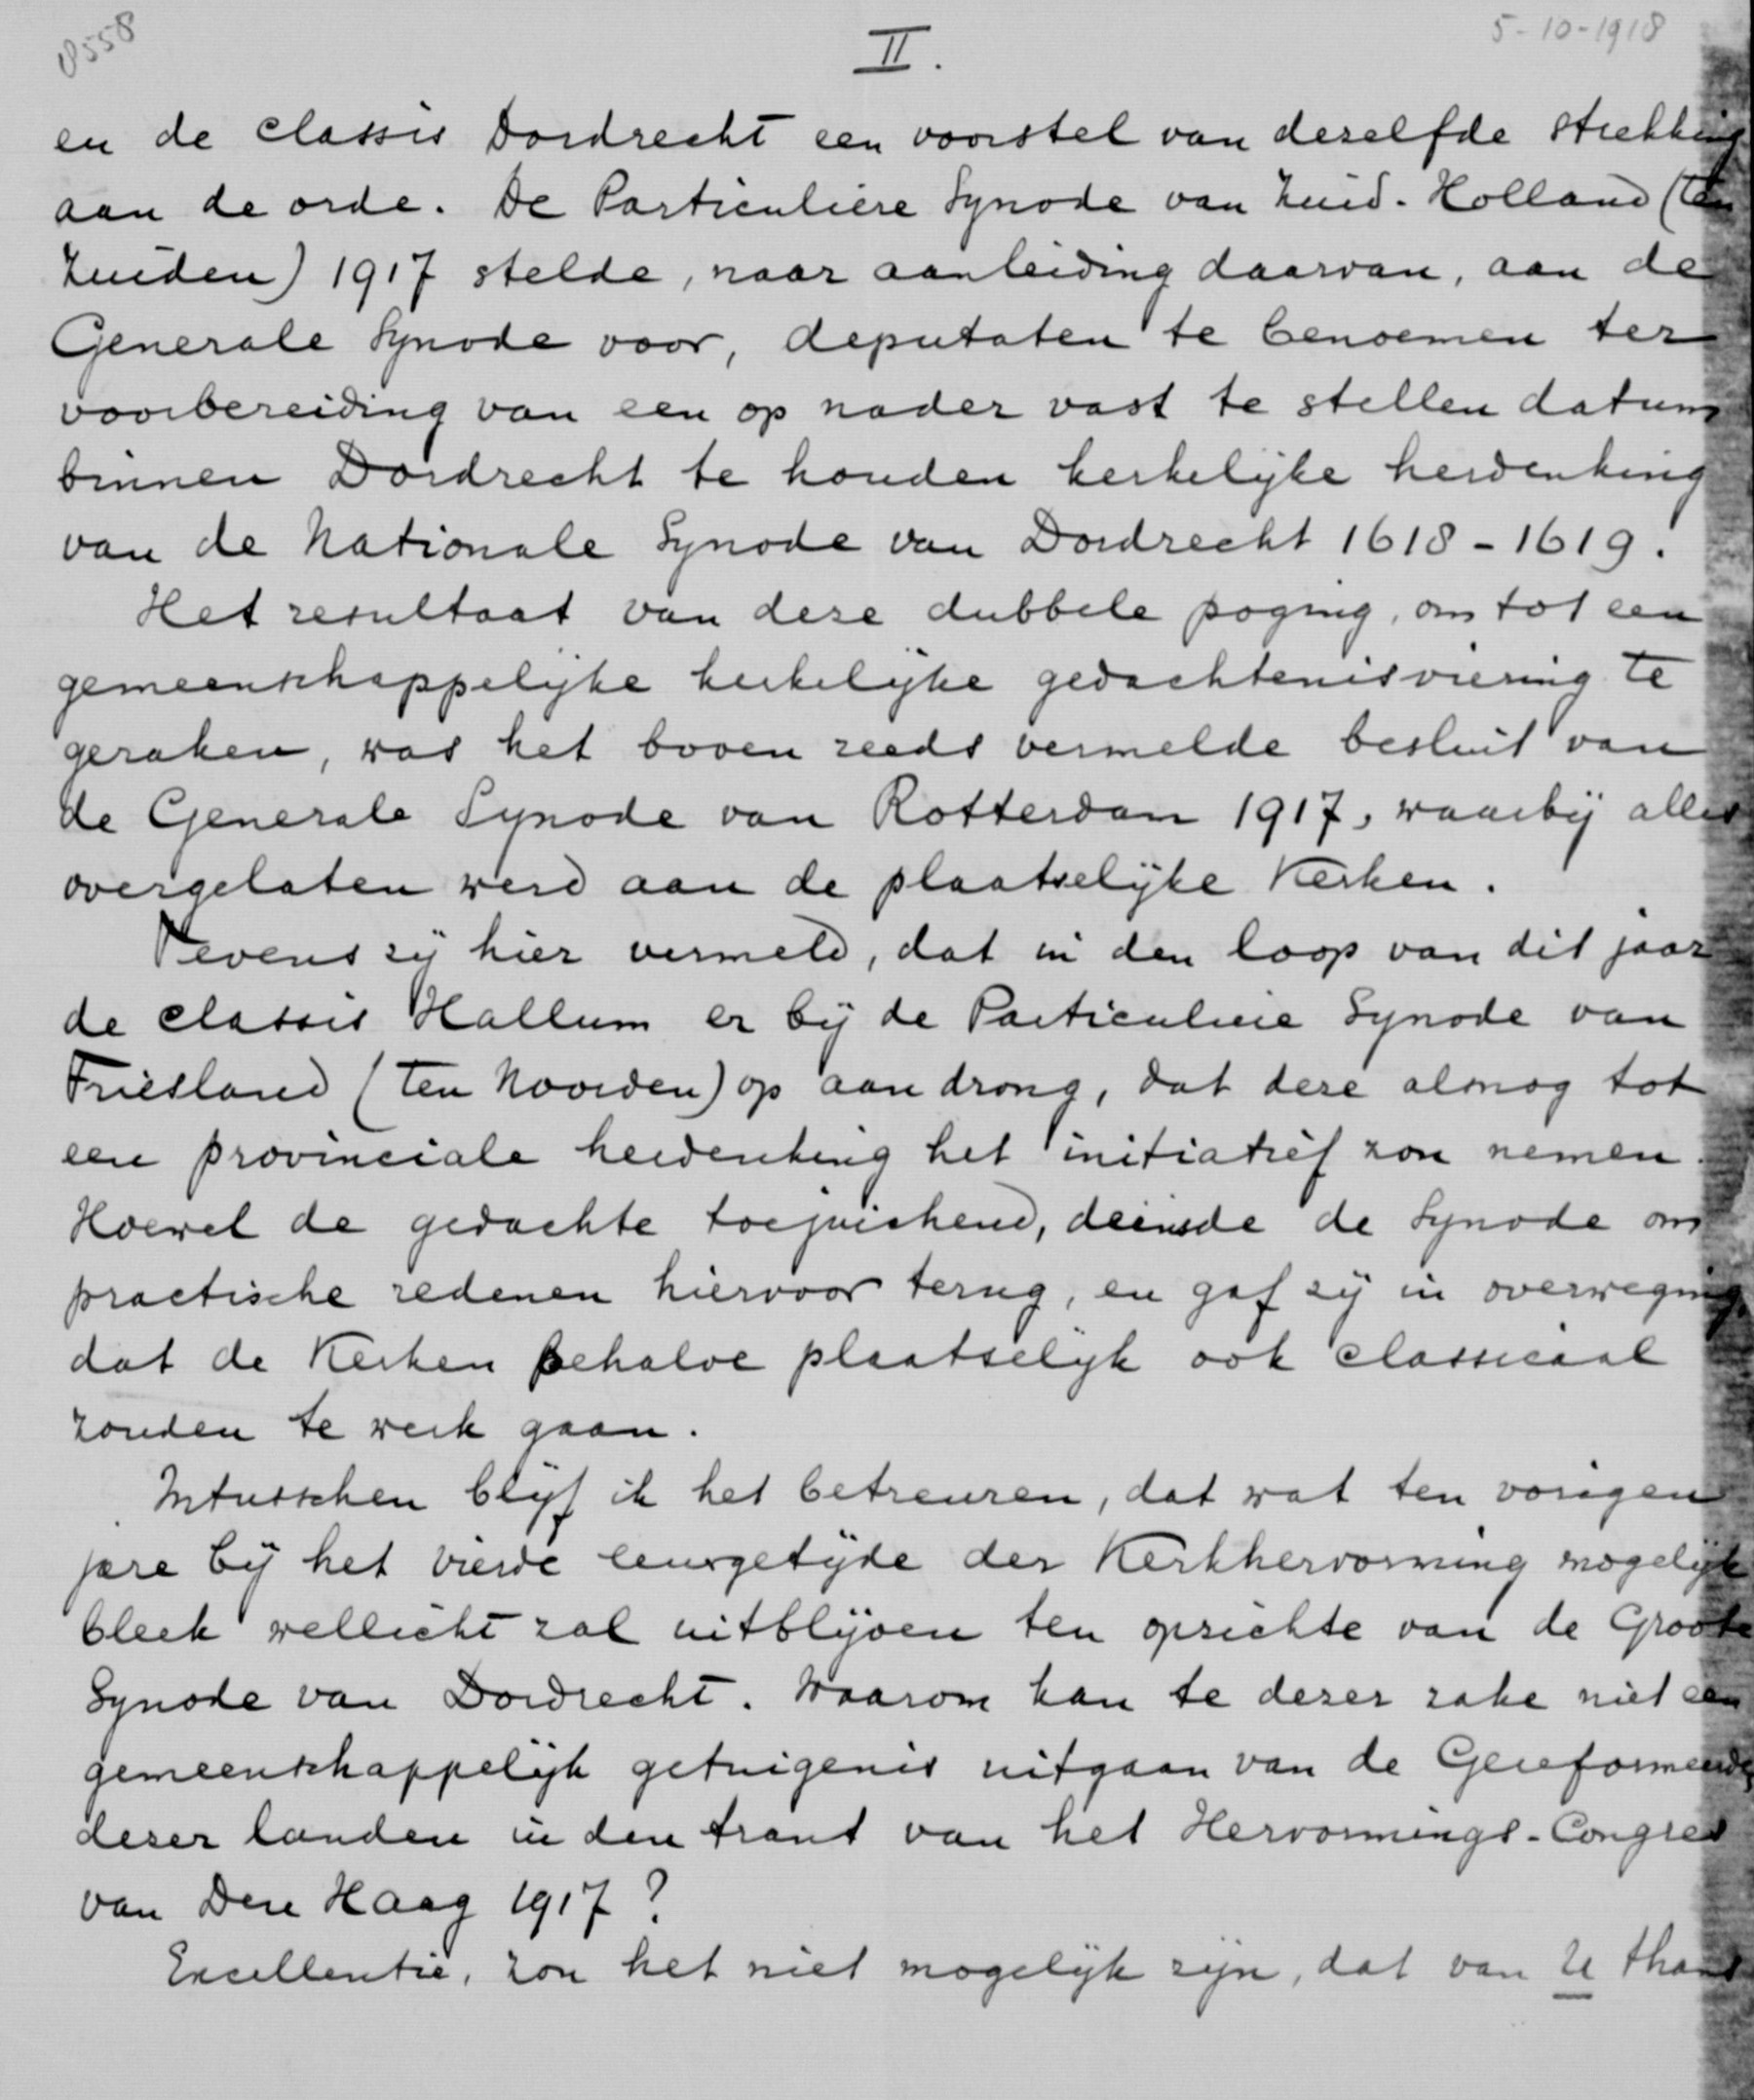 8558
II.
5-10-1918
en de classis Dordrecht een voorstel van dezelfde strekking
aan de orde. De Particuliere Synode van Zuid-Holland (ten
Zuiden) 1917 stelde, naar aanleiding daarvan, aan de
Generale Synode voor, deputaten te benoemen ter
voorbereiding van een op nader vast te stellen datum
binnen Dordrecht te houden kerkelijke herdenking
van de Nationale Synode van Dordrecht 1618-1619.
Het resultaat van deze dubbele poging, om tot een
gemeenschappelijke kerkelijke gedachtenisviering te
geraken, was het boven reeds vermelde besluit van
de Generale Synode van Rotterdam 1917, waarbij alles
overgelaten werd aan de plaatselijke Kerken.
Tevens zij hier vermeld, dat in den loop van dit jaar
de classis Hallum er bij de Particuliere Synode van
Friesland (ten Noorden) op aandrong, dat deze alsnog tot
een provinciale herdenking het initiatief zou nemen.
Hoewel de gedachte toejuichend, deinsde de Synode om
practische redenen hiervoor terug, en gaf zij in overweging,
dat de Kerken behalve plaatselijk ook classicaal
zouden te werk gaan.
Intusschen blijf ik het betreuren, dat wat ten vorigen
jare bij het vierde eeuwgetijde der Kerkhervorming mogelijk
bleek wellicht zal uitblijven ten opzichte van de Groote
Synode van Dordrecht. Waarom kan te dezer zake niet een
gemeenschappelijk getuigenis uitgaan van de Gereformeerden
dezer landen in den trant van het Hervormings-Congres
van Den Haag 1917?
Excellentie, zou het niet mogelijk zijn, dat van U thans